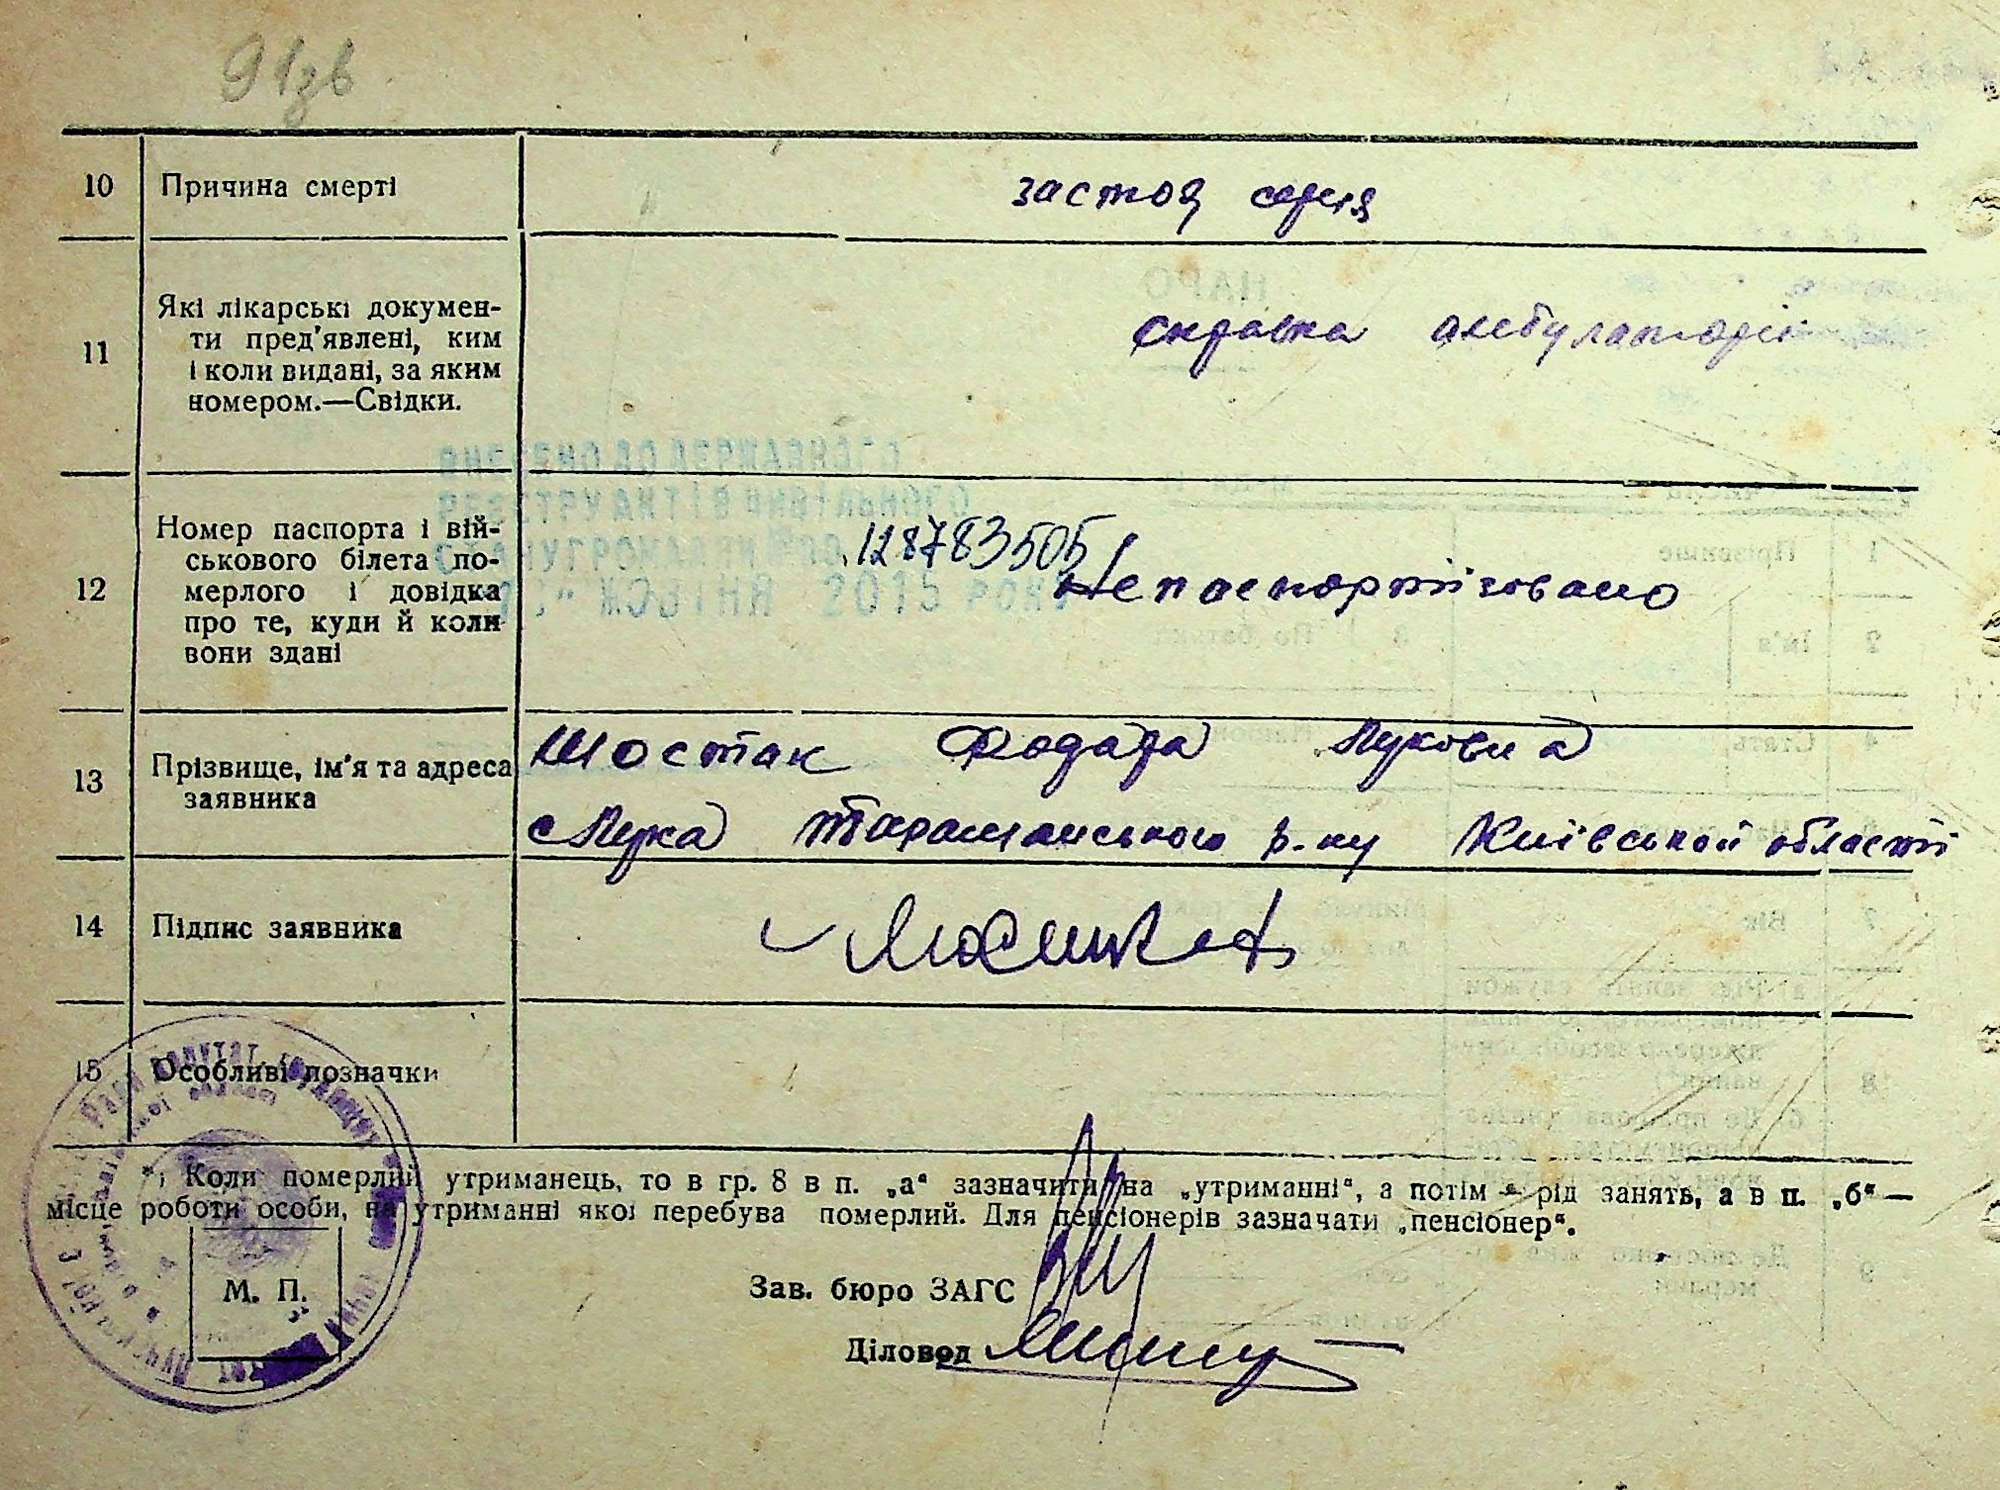 91зв
10 Причина смерті застоя серця
11 Які лікарські докумен-
ти пред'явлені, ким
і коли видані, за яким
номером.—Свідки.
справка амбулаторії
ВНЕСЕНО ДО ДЕРЖАВНОГО
РЕЄСТРУ АКТІВ ЦИВІЛЬНОГО
СТАНУ ГРОМАДЯН
ЖОВТНЯ 2015 РОКУ
12 Номер паспорта і вій-
ськового білета по-
мерлого і довідка
про те, куди й коли
вони здані
128783505
Непаспортізовано
13 Прізвище, ім'я та адреса
заявника
Шостак Луковна
с Лука Таращанського р-ну Київської області
14 Підпис заявника
15 Особливі позначки
*) Коли померлий утриманець, то в гр. 8 в п. „а“ зазначити на „утриманні“, а потім — рід занять, а в п. „б“ —
місце роботи особи, на утриманні якої перебува померлий. Для пенсіонерів зазначати „пенсіонер“.
М. П.
Зав. бюро ЗАГС
Діловод